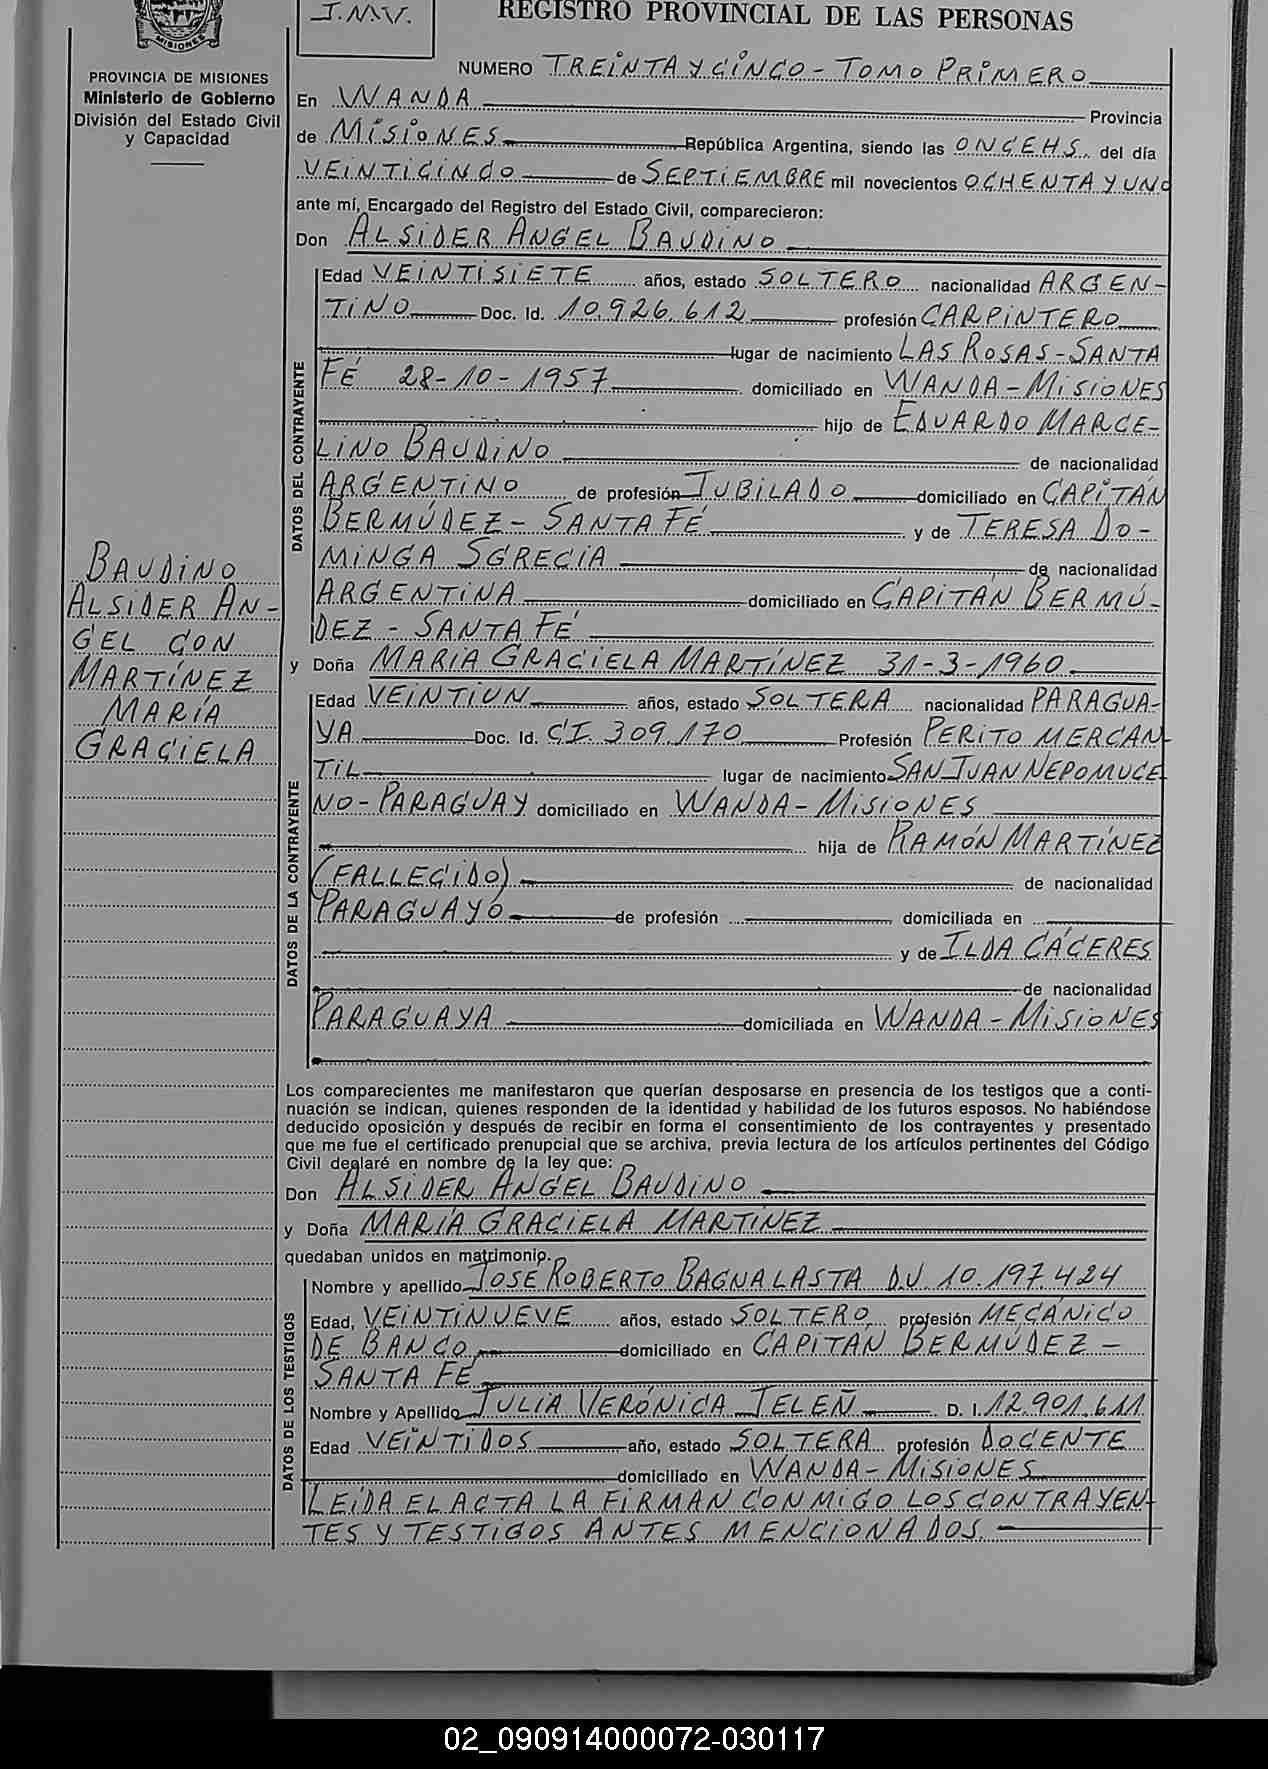 MISIONES
PROVINCIA DE MISIONES
Ministerio de Gobierno
División del Estado Civil
y Capacidad
BAUDINO
ALSIDER AN-
GEL CON
MARTÍNEZ
MARÍA
GRACIELA
REGISTRO PROVINCIAL DE LAS PERSONAS
NUMERO TREINTA Y CINCO - TOMO PRIMERO
En WANDA Provincia
de MISIONES República Argentina, siendo las ONCE HS. del día
VEINTICINCO de SEPTIEMBRE mil novecientos OCHENTA Y UNO
ante mí, Encargado del Registro del Estado Civil, comparecieron:
Don ALSIDER ANGEL BAUDINO
DATOS DEL CONTRAYENTE
Edad VEINTISIETE años, estado SOLTERO nacionalidad ARGEN-
TINO Doc. Id. 10.926.612 profesión CARPINTERO
lugar de nacimiento LAS ROSAS - SANTA
FÉ 28-10-1957 domiciliado en WANDA - MISIONES
hijo de EDUARDO MARCE-
LINO BAUDINO de nacionalidad
ARGENTINO de profesión JUBILADO domiciliado en CAPITÁN
BERMÚDEZ - SANTA FÉ y de TERESA DO-
MINGA SGRECIA de nacionalidad
ARGENTINA domiciliado en CAPITÁN BERMÚ-
DEZ - SANTA FÉ
y Doña MARIA GRACIELA MARTÍNEZ 31-3-1960
DATOS DE LA CONTRAYENTE
Edad VEINTIUN años, estado SOLTERA nacionalidad PARAGUA-
YA Doc. Id. CI. 309.170 Profesión PERITO MERCAN
TIL lugar de nacimiento SAN JUAN NEPOMUCE
NO - PARAGUAY domiciliado en WANDA - MISIONES
hija de RAMÓN MARTÍNEZ
(FALLECIDO) de nacionalidad
PARAGUAYO de profesión domiciliada en
y de ILDA CÁCERES
de nacionalidad
PARAGUAYA domiciliada en WANDA - MISIONES
Los comparecientes me manifestaron que querían desposarse en presencia de los testigos que a conti-
nuación se indican, quienes responden de la identidad y habilidad de los futuros esposos. No habiéndose
deducido oposición y después de recibir en forma el consentimiento de los contrayentes y presentado
que me fue el certificado prenupcial que se archiva, previa lectura de los artículos pertinentes del Código
Civil declaré en nombre de la ley que:
Don ALSIDER ANGEL BAUDINO
y Doña MARÍA GRACIELA MARTÍNEZ
quedaban unidos en matrimonio.
DATOS DE LOS TESTIGOS
Nombre y apellido JOSE ROBERTO BAGNALASTA D.U. 10.197.424
Edad, VEINTINUEVE años, estado SOLTERO profesión MECÁNICO
DE BANCO domiciliado en CAPITAN BERMÚDEZ -
SANTA FÉ
Nombre y Apellido JULIA VERÓNICA JELEÑ D. I. 12.901.611
Edad VEINTIDOS año, estado SOLTERA profesión DOCENTE
domiciliado en WANDA - MISIONES
LEÍDA EL ACTA LA FIRMAN CONMIGO LOS CONTRAYEN-
TES Y TESTIGOS ANTES MENCIONADOS.
02_090914000072-030117